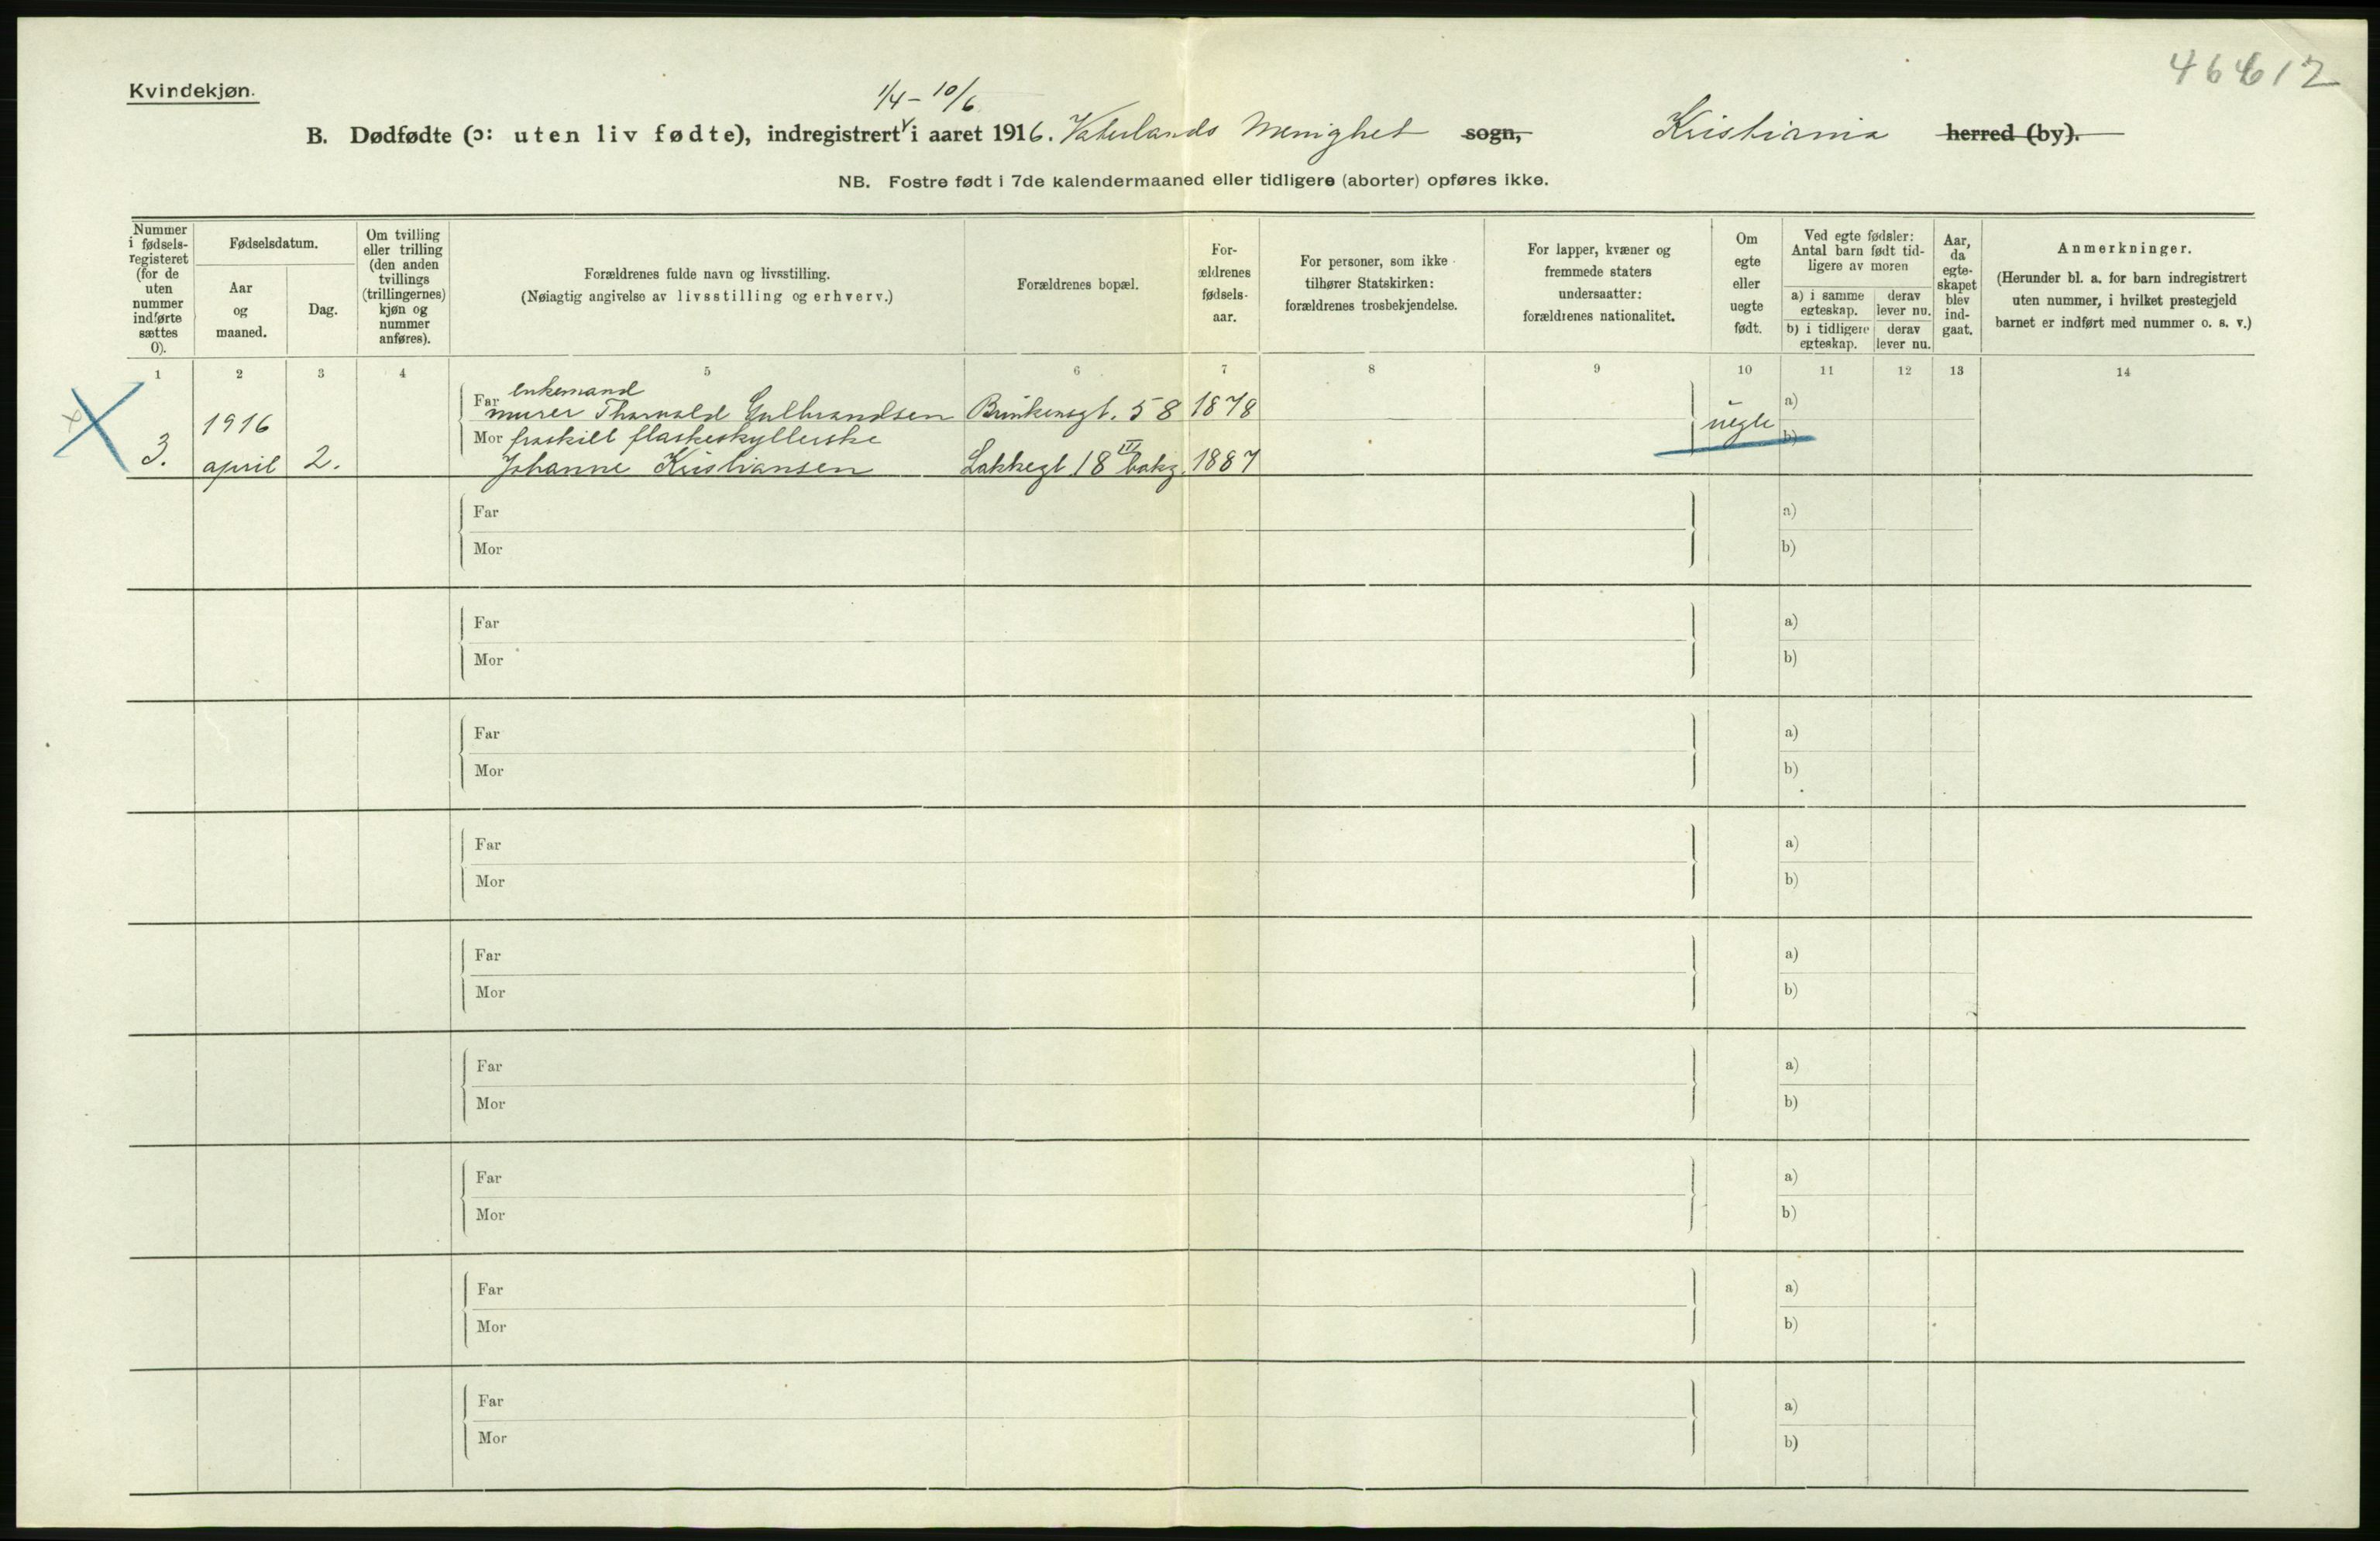 46612
Kvindekjøn.
1/4 – 10/6
B. Dødfødte (ɔ: uten liv fødte), indregistrert i aaret 1916. Vaterlands Menighet sogn, Kristiania herred (by).
NB. Fostre født i 7de kalendermaaned eller tidligere (aborter) opføres ikke.
Nummer
i fødsels-
registeret
(for de
uten
nummer
indførte
sættes
0).
Fødselsdatum.
Aar
og
maaned.
Dag.
Om tvilling
eller trilling
(den anden
tvillings
(trillingernes)
kjøn og
nummer
anføres).
Forældrenes fulde navn og livsstilling.
(Nøiagtig angivelse av livsstilling og erhverv.)
Forældrenes bopæl.
For-
ældrenes
fødsels-
aar.
For personer, som ikke
tilhører Statskirken:
forældrenes trosbekjendelse.
For lapper, kvæner og
fremmede staters
undersaatter:
forældrenes nationalitet.
Om
egte
eller
uegte
født.
Ved egte fødsler:
Antal barn født tid-
ligere av moren
a) i samme
egteskap.
derav
lever nu.
b) i tidligere
egteskap.
derav
lever nu.
Aar,
da
egte-
skapet
blev
ind-
gaat.
Anmerkninger.
(Herunder bl. a. for barn indregistrert
uten nummer, i hvilket prestegjeld
barnet er indført med nummer o. s. v.)
1 2 3 4 5 6 7 8 9 10 11 12 13 14
enkemand
Far murer Thorvald Gulbrandsen Brinkensgt. 58 1878 a)
1916
uegte
Mor fraskilt flaskeskyllerske b)
3. april 2. Johanne Kristiansen Lakkegt 18 III bakg. 1887
Far a)
Mor b)
Far a)
Mor b)
Far a)
Mor b)
Far a)
Mor b)
Far a)
Mor b)
Far a)
Mor b)
Far a)
Mor b)
Far a)
Mor b)
Far a)
Mor b)